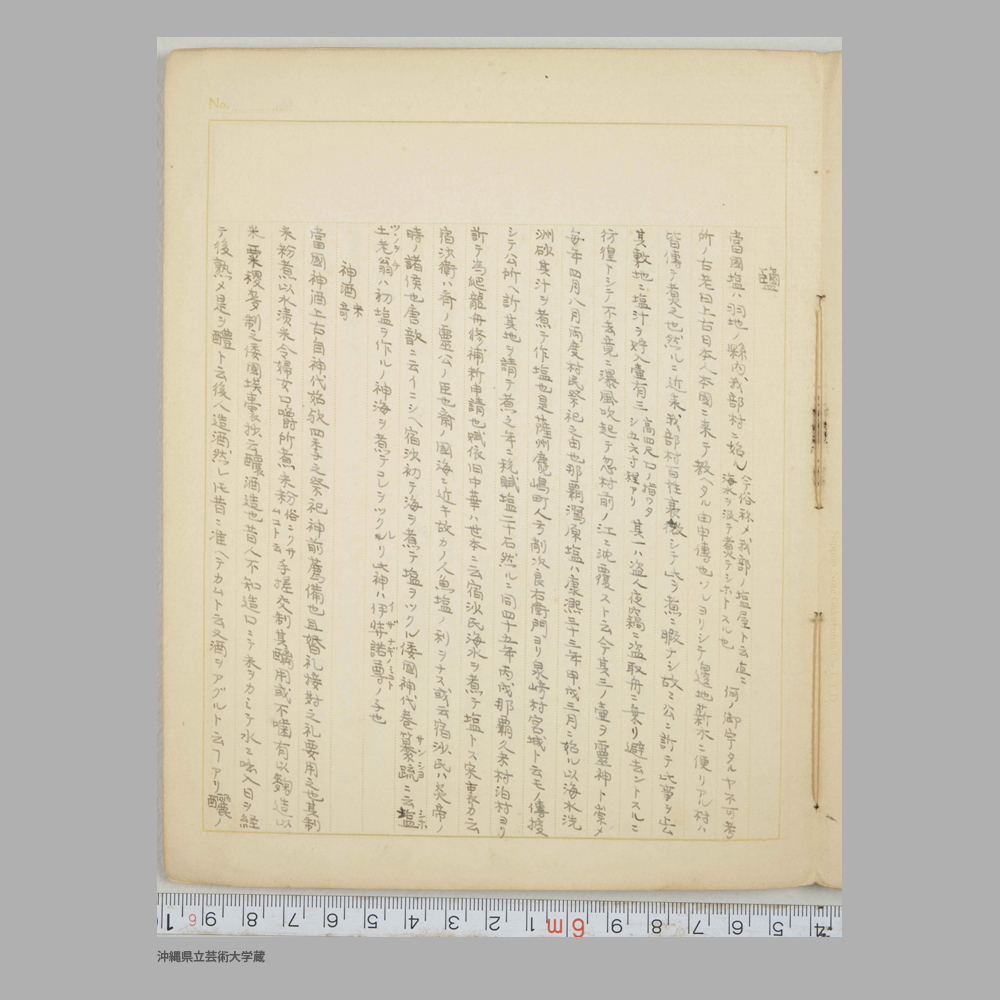 No.
鹽
當國塩ハ羽地ノ縣内我部村ニ始ル 今俗称メ我部ノ塩屋ト云直ニ 海水ヲ汲テ煮テシホトスル也 何ノ御宇タルヤ不可考
所ノ古老曰上古日本人本國ニ来テ教ヘタル由申傳也ソレヨリシテ邊地薪水ニ便リアル村ハ
皆傳テ煮之也然ルニ近来我部村百性裏微シテ塩ヲ煮ニ暇ナシ故ニ公ニ訴テ此業ヲ止
其敷地ニ塩汁ヲ貯入壷有三 高四尺口ノ指ワタ シ五六寸程アリ 其一ハ盗人夜竊ニ盗取舟ニ乗リ避去ントスルニ
彷徨トシテ不去竟ニ瀑風吹起テ忽村前ノ江ニ沈覆スト云今其三ノ壷ヲ靈神ト崇メ
毎年四月八月両度村民祭祀之由也那覇潟原塩ハ康熙三十三年甲戌三月ニ始ル以海水洗
洲砂其汁ヲ煮テ作塩也是薩州麑嶋町人弓削次良右衛門ヨリ泉崎村宮城ト云モノ傳授
シテ公所ヘ訴其地ヲ請テ煮之年ニ税賦塩二十石然ルニ同四十五年丙戌那覇久米村泊村ヨリ
訴テ為絶龍舟修補新申請也賦依旧中華ハ世本ニ云宿沙民海水ヲ煮テ塩トス宋衷カ云
宿沙衛ハ齊ノ靈公ノ臣也齊ノ國海ニ近キ故カノ人魚塩ノ利ヲナス或云宿沙民ハ炎帝ノ
時ノ諸侯也唐歆ニ云イニシヘ宿沙初テ海ヲ煮テ塩ヲツクル倭國神代巻纂疏ニ云塩
サンショ
シホ
土老翁ハ初塩ヲ作ルノ神海ヲ煮テコレヲツクルリ此神ハ伊弉諾尊ノ子也
ツゝノヲチ
イザナギノミコト
神酒 米 奇
當國神酒上古自神代始欤四季之祭祀神前薦備也且婚礼接対之礼要用之也其制
米粉煮以水漬米令婦女口嚼所煮米粉 俗ニクサ ムコト云 手搓交制其醨用或不嚙有以麴造以
米粟稷麥制之倭國埃囊抄云釀酒造也昔人不知造口ニテ米ヲカミテ水ニ吐入日ヲ経
テ後熟メ是ヲ醴ト云後人造酒然レ圧昔ニ准ヘテカムト云又酒ヲアグルト云フアリ釃ノ
醅
1 6 9 8 7 6 5 4 3 2 1 6m 9 8 7 6 5 4
沖縄県立芸術大学蔵